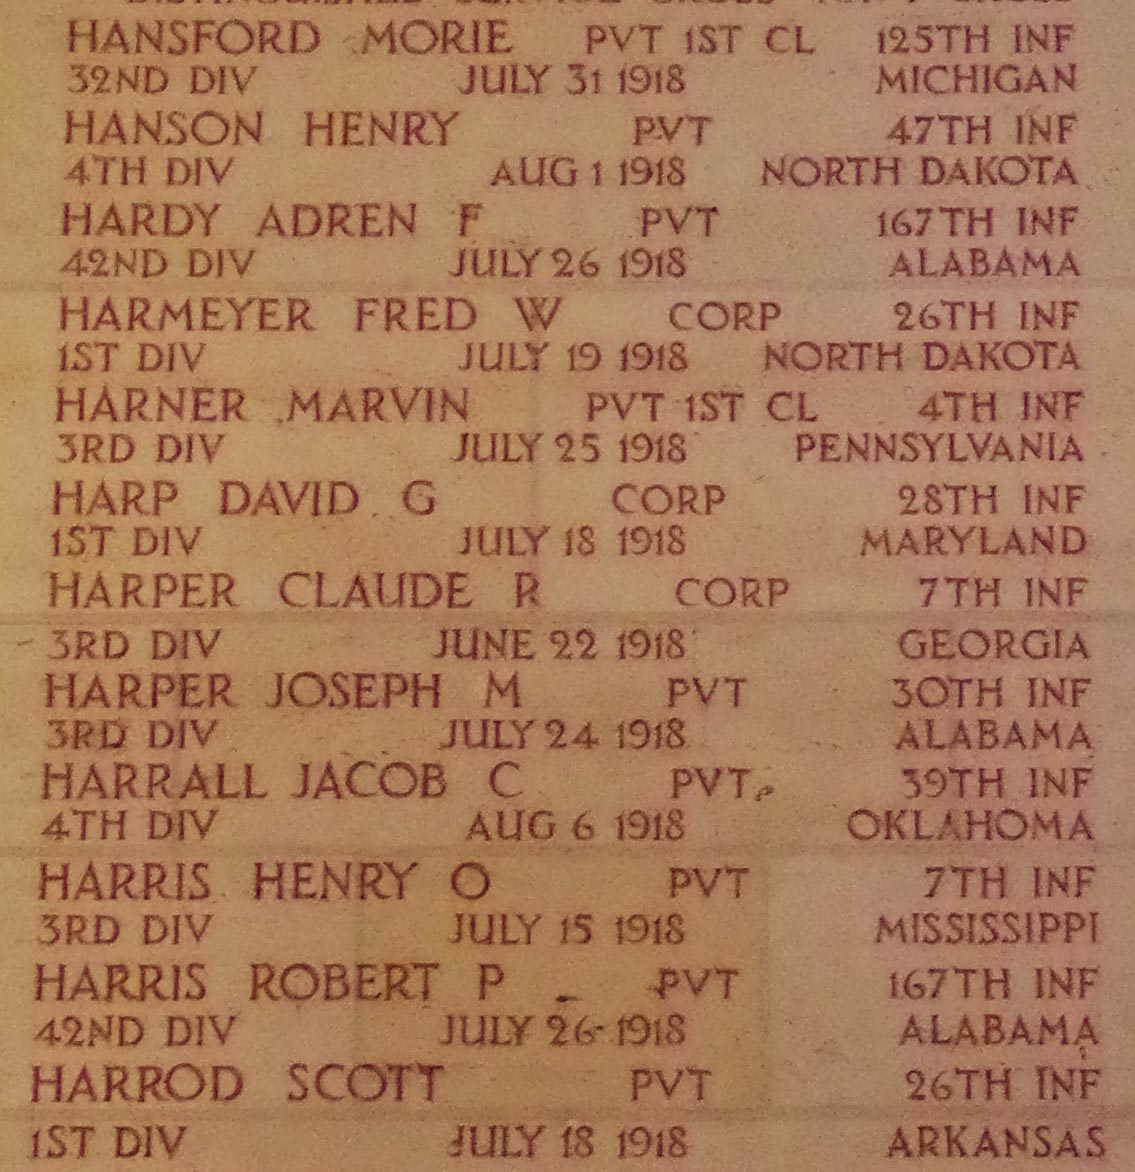 DISTINGUISHED SERVICE CROSS NAVY CROSS
HANSFORD MORIE PVT 1ST CL 125TH INF
32ND DIV JULY 31 1918 MICHIGAN
HANSON HENRY PVT 47TH INF
4TH DIV AUG 1 1918 NORTH DAKOTA
HARDY ADREN F PVT 167TH INF
42ND DIV JULY 26 1918 ALABAMA
HARMEYER FRED W CORP 26TH INF
1ST DIV JULY 19 1918 NORTH DAKOTA
HARNER MARVIN PVT 1ST CL 4TH INF
3RD DIV JULY 25 1918 PENNSYLVANIA
HARP DAVID G CORP 28TH INF
1ST DIV JULY 18 1918 MARYLAND
HARPER CLAUDE R CORP 7TH INF
3RD DIV JUNE 22 1918 GEORGIA
HARPER JOSEPH M PVT 30TH INF
3RD DIV JULY 24 1918 ALABAMA
HARRALL JACOB C PVT 39TH INF
4TH DIV AUG 6 1918 OKLAHOMA
HARRIS HENRY O PVT 7TH INF
3RD DIV JULY 15 1918 MISSISSIPPI
HARRIS ROBERT P PVT 167TH INF
42ND DIV JULY 26 1918 ALABAMA
HARROD SCOTT PVT 26TH INF
1ST DIV JULY 18 1918 ARKANSAS